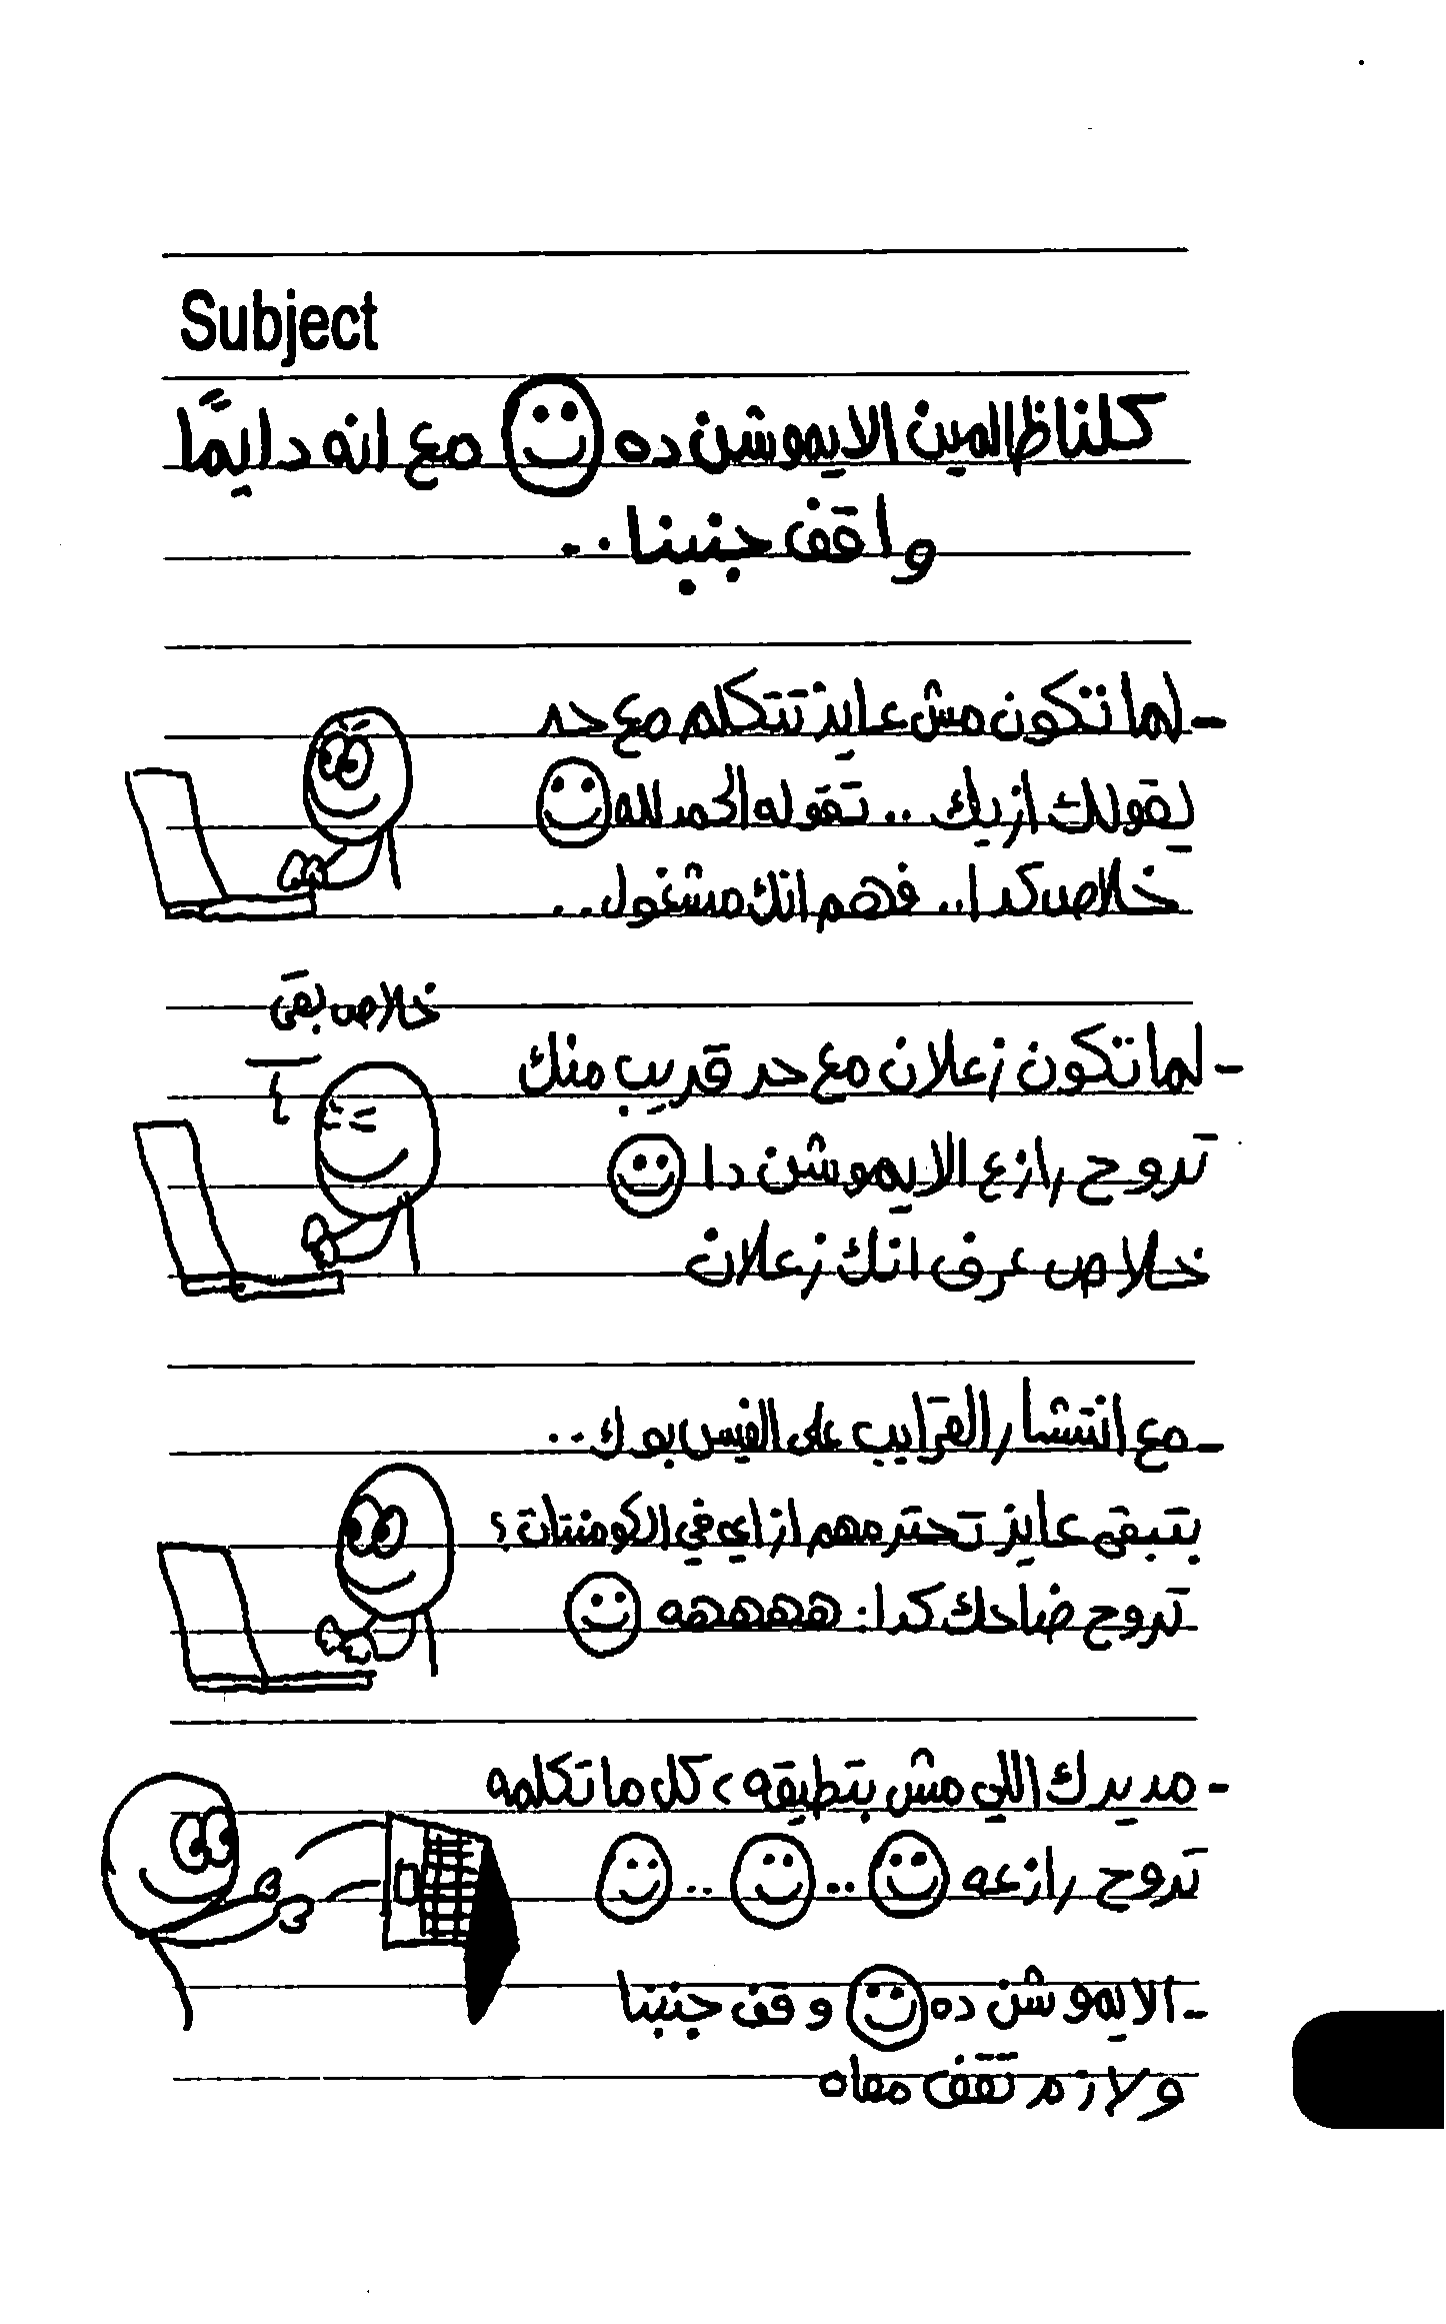 Subject
كلنا ظالمين الايموشن ده 🙂 مع انه دايمًا
واقف جنبنا..
- لما تكون مش عايز تتكلم مع حد
يقولك ازيك .. تقوله الحمد لله 🙂
خلاص كدا.. فهم انك مشغول..
خلاص بقى
- لما تكون زعلان مع حد قريب منك
تروح رازع الايموشن دا 🙂
خلاص عرف انك زعلان
- مع انتشار القرايب على الفيس بوك..
بتبقى عايز تحترمهم ازاي في الكومنتات؟
تروح ضاحك كدا: هههههه 🙂
- مديرك اللي مش بتطيقه، كل ما تكلمه
تروح رازعه 🙂..🙂..🙂
- الايموشن ده 🙂 وقف جنبنا
ولازم نقف معاه